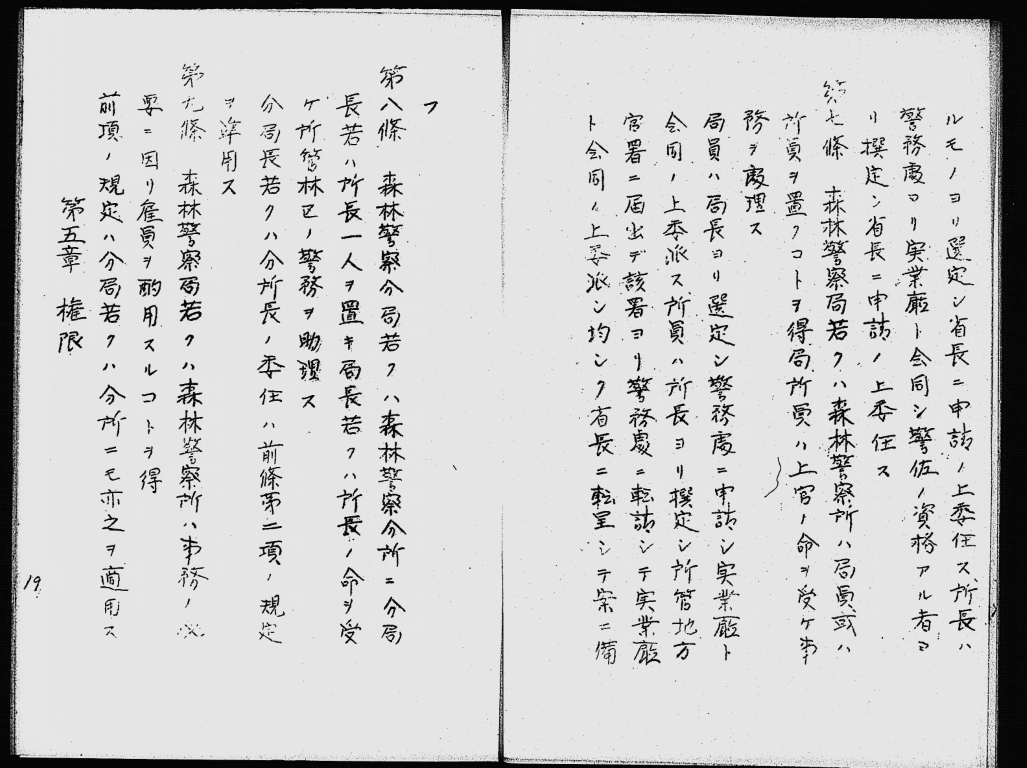 ルモノヨリ選定シ省長ニ申請ノ上委任ス所長ハ
警務處ヨリ実業廰ト会同シ警佐ノ資格アル者ヨ
リ撰定シ省長ニ申請ノ上委任ス
第七條　森林警察局若クハ森林警察所ハ局員或ハ
所員ヲ置クコトヲ得局所員ハ上官ノ命ヲ受ケ事
務ヲ處理ス
局員ハ局長ヨリ選定シ警務處ニ申請シ実業廰ト
会同ノ上委派ス所員ハ所長ヨリ撰定シ所管地方
官署ニ届出デ該署ヨリ警務處ニ転請シテ実業廰
ト会同ノ上委派シ均シク省長ニ転呈シテ案ニ備
フ
第八條　森林警察分局若クハ森林警察分所ニ分局
長若ハ所長一人ヲ置キ局長若クハ所長ノ命ヲ受
ケ所管林区ノ警務ヲ助理ス
分局長若クハ分所長ノ委任ハ前條第二項ノ規定
ヲ準用ス
第九條　森林警察局若クハ森林警察所ハ事務ノ必
要ニ因リ雇員ヲ酌用スルコトヲ得
前項ノ規定ハ分局若クハ分所ニモ亦之ヲ適用ス
第五章　権限
19